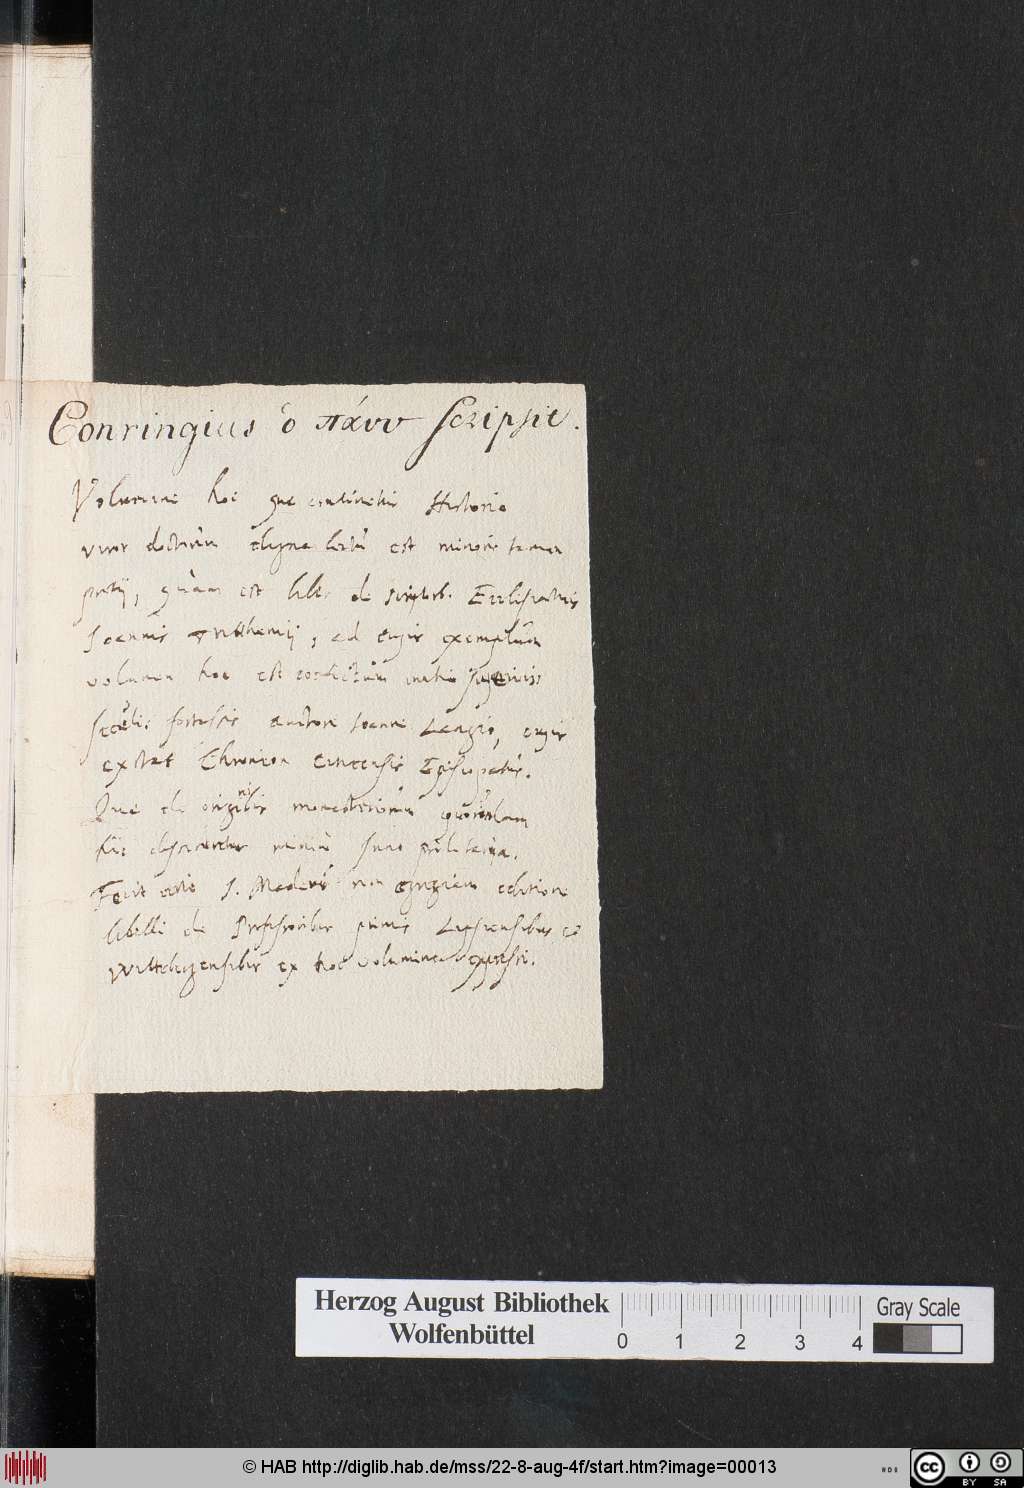 Conringius ὁ πάνυ scripsit.
Volumine hoc quae continetur Historia
viror doctorum digna lectu est minoris tamen
pretij, quam est liber de scriptorib. Ecclesiasticis
Joannis Trithemij, ad cujus exemplum
volumen hoc est confectum initio superioris
seculi fortassis auctore Joanne Langio, cujus
extat Chronicon Citicensis Episcopatus.
Quae de originibus monasteriorum quorundam
hic describuntur minime sunt
Fecit Maderus egregiam editione
libelli de Professoribus primis Lipsiensibus et
Wittebergensibus ex hoc volumine expressi.
Herzog August Bibliothek
Wolfenbüttel
0 1 2 3 4
Gray Scale
© HAB http://diglib.hab.de/mss/22-8-aug-4f/start.htm?image=00013
cc BY SA